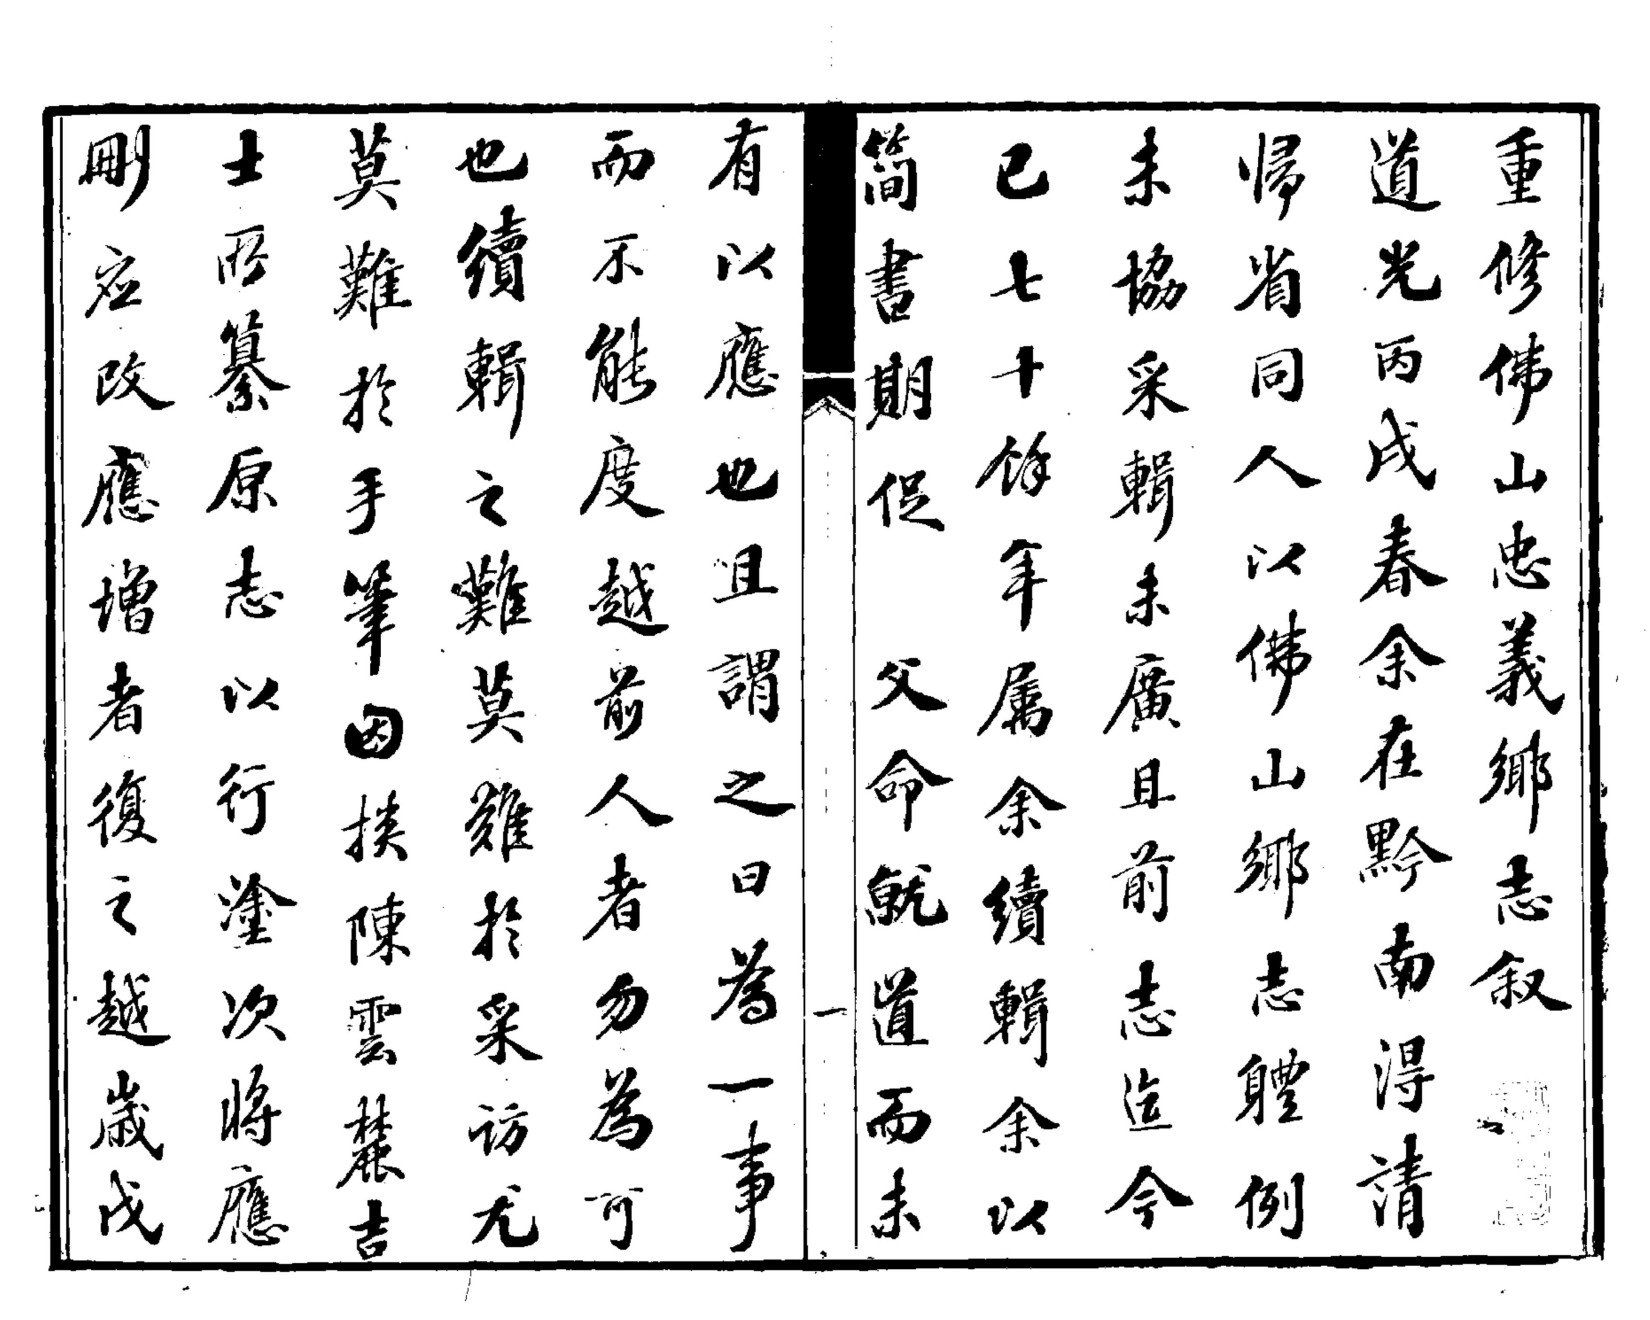 重修佛山忠義鄉志叙
道光丙戌春余在黔南得請
歸省同人以佛山鄉志體例
未協采輯未廣且前志迄今
已七十餘年屬余續輯余以
簡書期促 父命就道而未
一
有以應也且謂之曰為一事
而不能度越前人者勿為可
也續輯之難莫難於采訪尤
莫難於手筆因挨陳雲麓吉
士所纂原志以行塗次將應
刪应改應增者復之越歲戊